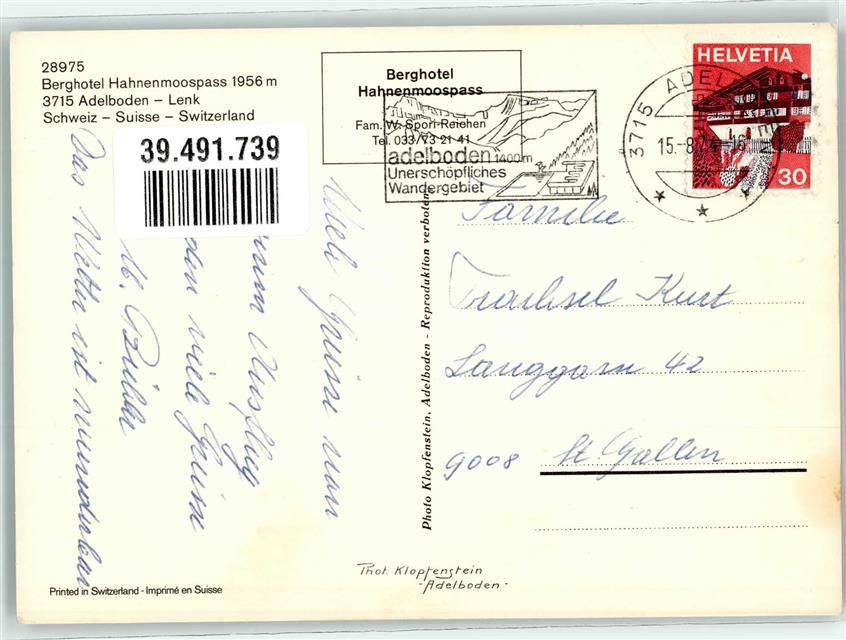 28975
Berghotel Hahnenmoospass 1956 m
3715 Adelboden – Lenk
Schweiz – Suisse – Switzerland
39.491.739
Berghotel
Hahnenmoospass
Fam. W. Spori-Reichen
Tel. 033/73 21 41
adelboden 1400m
Unerschöpfliches
Wandergebiet
3715 ADELBODEN
15.-8.74-16
HELVETIA
30
Viele Grüsse
den viele Grüsse
Das Wetter ist wunderbar
Familie
Trachsel Kurt
Langgasse 42
9008 St Gallen
Photo Klopfenstein, Adelboden - Reproduktion verboten
Phot. Klopfenstein
- Adelboden -
Printed in Switzerland - Imprimé en Suisse